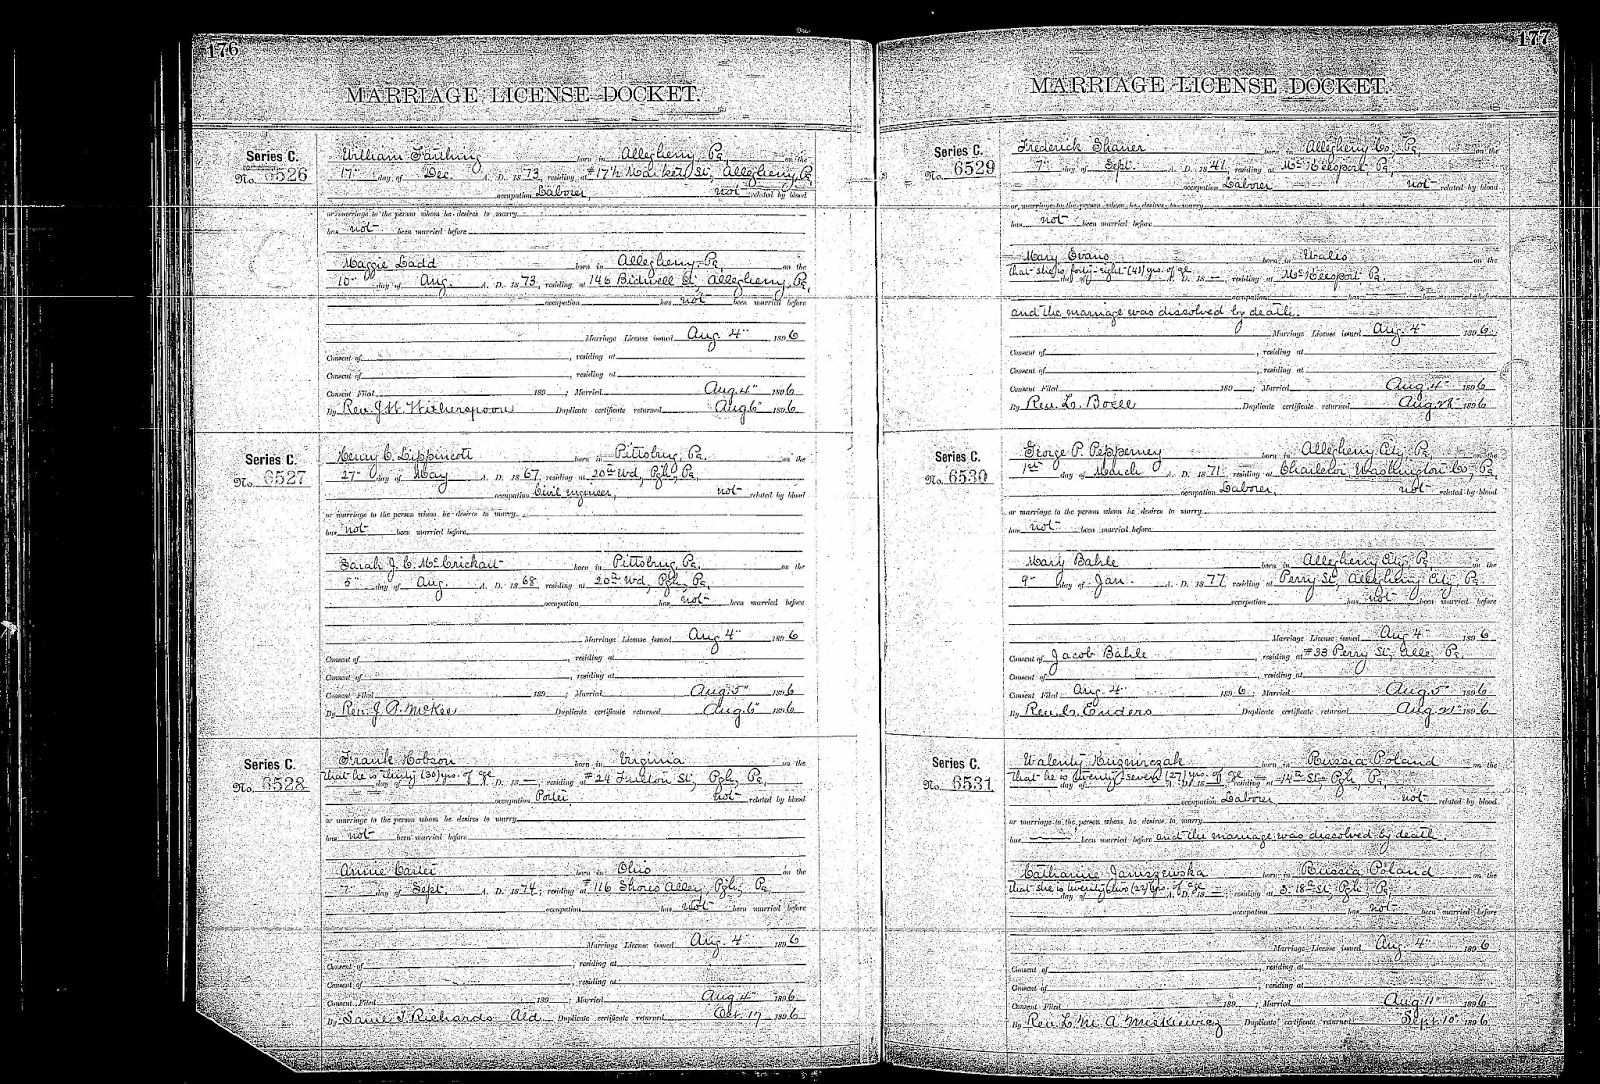 176
MARRIAGE LICENSE DOCKET.
Series C.
No. 6526
William Farthing born in Allegheny Pa, on the
17" day of Dec. A. D. 1873, residing at #17½ Market St, Allegheny Pa
occupation Laborer, not related by blood
or marriage to the person whom he desires to marry
has not been married before
Maggie Ladd born in Allegheny Pa, on the
10" day of Aug. A. D. 1873, residing at 146 Bidwell St. Allegheny Pa,
occupation has not been married before
Marriage License issued Aug 4" 1896
Consent of , residing at
Consent of , residing at
Consent Filed 189 ; Married Aug. 4" 1896
By Rev. J. H. Witherspoon Duplicate certificate returned Aug 6" 1896
Series C.
No. 6527
Henry C. Lippincott born in Pittsburg, Pa. on the
27" day of May A. D. 1867, residing at 20th Wd, Pgh, Pa,
occupation Civil engineer, not related by blood
or marriage to the person whom he desires to marry
has not been married before
Sarah J. C. McCrickart born in Pittsburg, Pa. on the
5" day of Aug. A. D. 1868 residing at 20th Wd, Pgh, Pa,
occupation has not been married before
Marriage License issued Aug 4" 1896
Consent of , residing at
Consent of , residing at
Consent Filed 189 ; Married Aug. 5" 1896
By Rev. J. P. McKee Duplicate certificate returned Aug. 6" 1896
Series C.
No. 6528
Frank Hobson born in Virginia on the
that he is thirty (30) yrs. of age day of A. D. 18 — , residing at #24 Fulton St, Pgh, Pa,
occupation Porter not related by blood
or marriage to the person whom he desires to marry
has not been married before
Annie Carter born in Ohio on the
7" day of Sept. A. D. 1874, residing at #116 Alley, Pgh, Pa,
occupation has not been married before
Marriage License issued Aug. 4" 1896
Consent of , residing at
Consent of , residing at
Consent Filed 189 ; Married Aug. 4" 1896
By Saml J. Richards Ald Duplicate certificate returned Oct. 17 1896
177
MARRIAGE LICENSE DOCKET.
Series C.
No. 6529
Frederick Shaner born in Allegheny Co, Pa, on the
7" day of Sept. A. D. 1841, residing at McKeesport Pa,
occupation Laborer not related by blood
or marriage to the person whom he desires to marry
has not been married before
Mary Evans born in Wales on the
that she is forty-eight (48) yrs. of age day of A. D. 18 — , residing at McKeesport Pa.
occupation has been married before
and the marriage was dissolved by death.
Marriage License issued Aug. 4" 1896.
Consent of , residing at
Consent of , residing at
Consent Filed 189 ; Married Aug. 4" 1896
By Rev. L. Duplicate certificate returned Aug. 28" 1896
Series C.
No. 6530
George P. Pepperney born in Allegheny City Pa. on the
1st day of March A. D. 1871 residing at Charleroi, Washington Co, Pa,
occupation Laborer, not related by blood
or marriage to the person whom he desires to marry
has not been married before
Mary Bahle born in Allegheny City, Pa, on the
9" day of Jan. A. D. 1877 residing at Perry St, Allegheny City Pa.
occupation has not been married before
Marriage License issued Aug. 4" 1896
Consent of Jacob Bahle , residing at #33 Perry St, Alle, Pa.
Consent of , residing at
Consent Filed Aug. 4" 1896 ; Married Aug. 5" 1896
By Rev. G. Enders Duplicate certificate returned Aug. 21" 1896
Series C.
No. 6531
Walenty Kuzniczak born in Russia Poland on the
that he is twenty seven (27) yrs. of age day of A. D. 18 — , residing at 14th St, Pgh, Pa,
occupation Laborer, not related by blood
or marriage to the person whom he desires to marry
has — been married before and the marriage was dissolved by death.
Catharine Janiszewska born in Russia Poland on the
that she is twenty two (22) yrs. of age day of A. D. 18 — , residing at S. 18th St, Pgh, Pa,
occupation has not been married before
Marriage License issued Aug. 4" 1896
Consent of , residing at
Consent of , residing at
Consent Filed 189 ; Married Aug. 11" 1896
By Rev. C. M. A. Miskiewicz Duplicate certificate returned Sept. 10" 1896